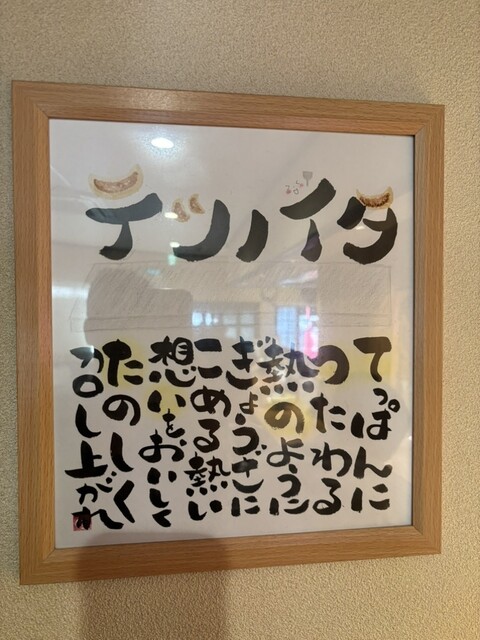 テツノイタ
てっぱんに
つたわる
熱のように
ぎょうざに
こめる熱い
想いをおいしく
たのしく
召し上がれ